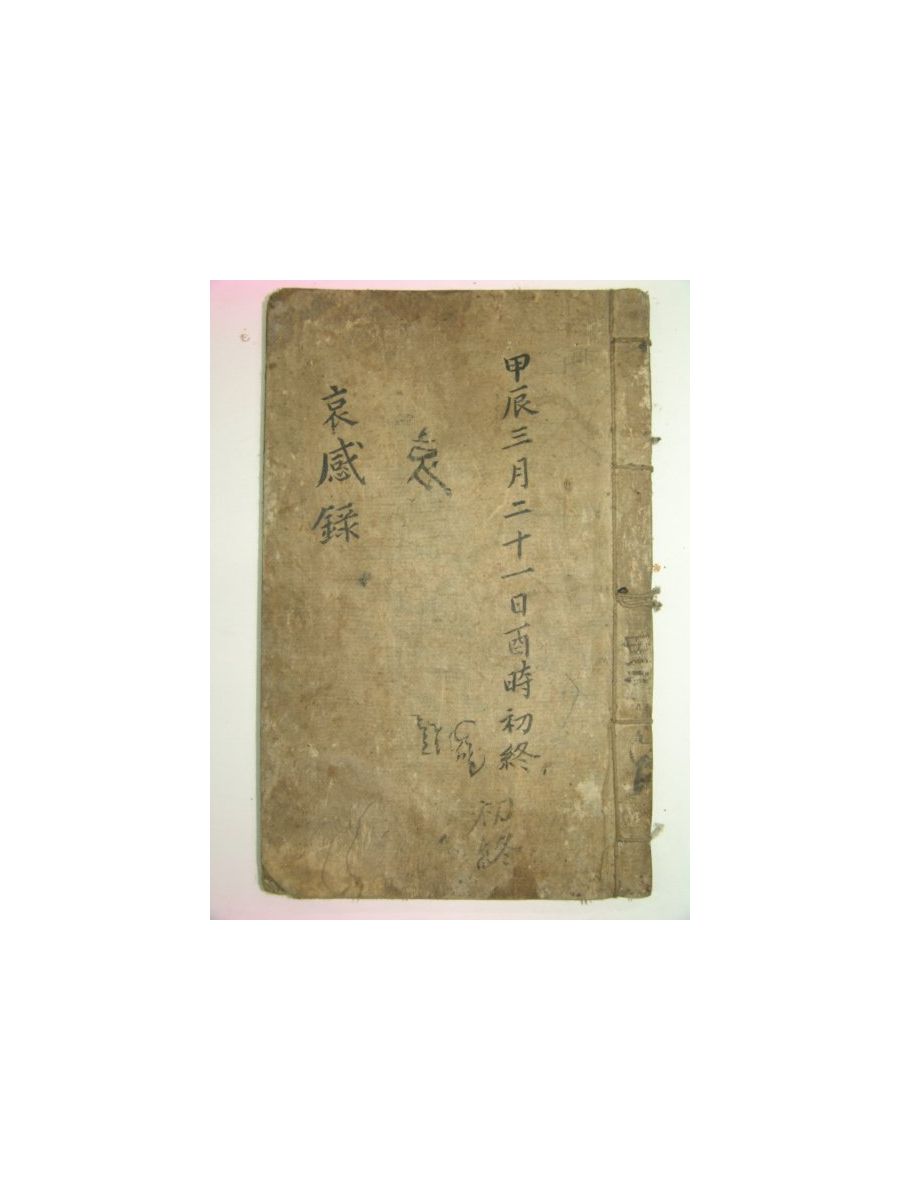 甲辰三月二十一日酉時初終
初終
哀
哀感錄